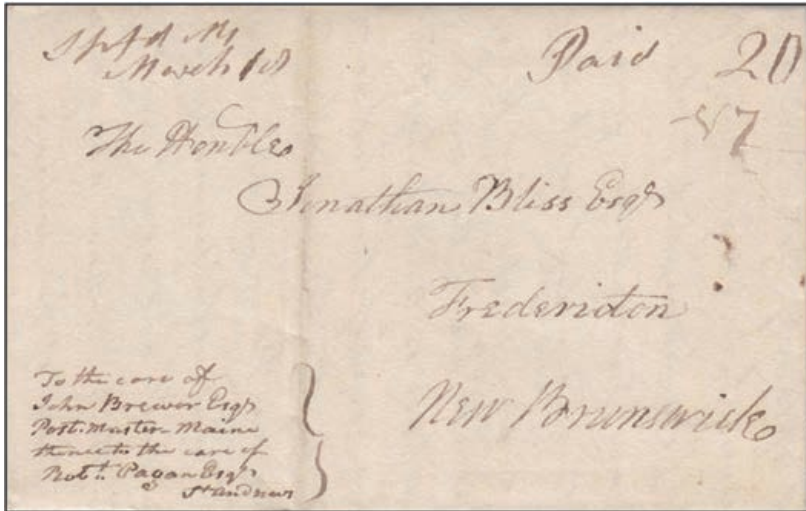 Spfd Ms
March 18
Paid 20
The Honble
Jonathan Bliss Esqr
Fredericton
New Brunswick
To the care of
John Brewer Esqr
Post-Master-Maine
thence to the care of
Robt. Pagan Esqr
St andrews